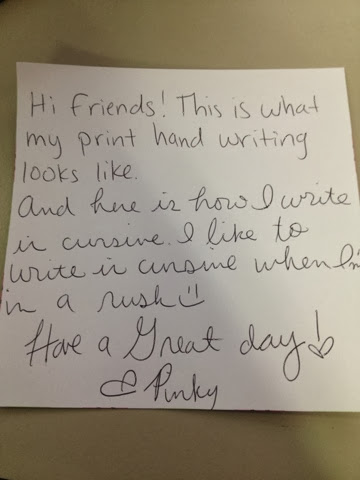 Hi friends! This is what
my print hand writing
looks like.
And here is how I write
in cursive. I like to
write in cursive when I'm
in a rush :)
Have a Great day!
♡ Pinky